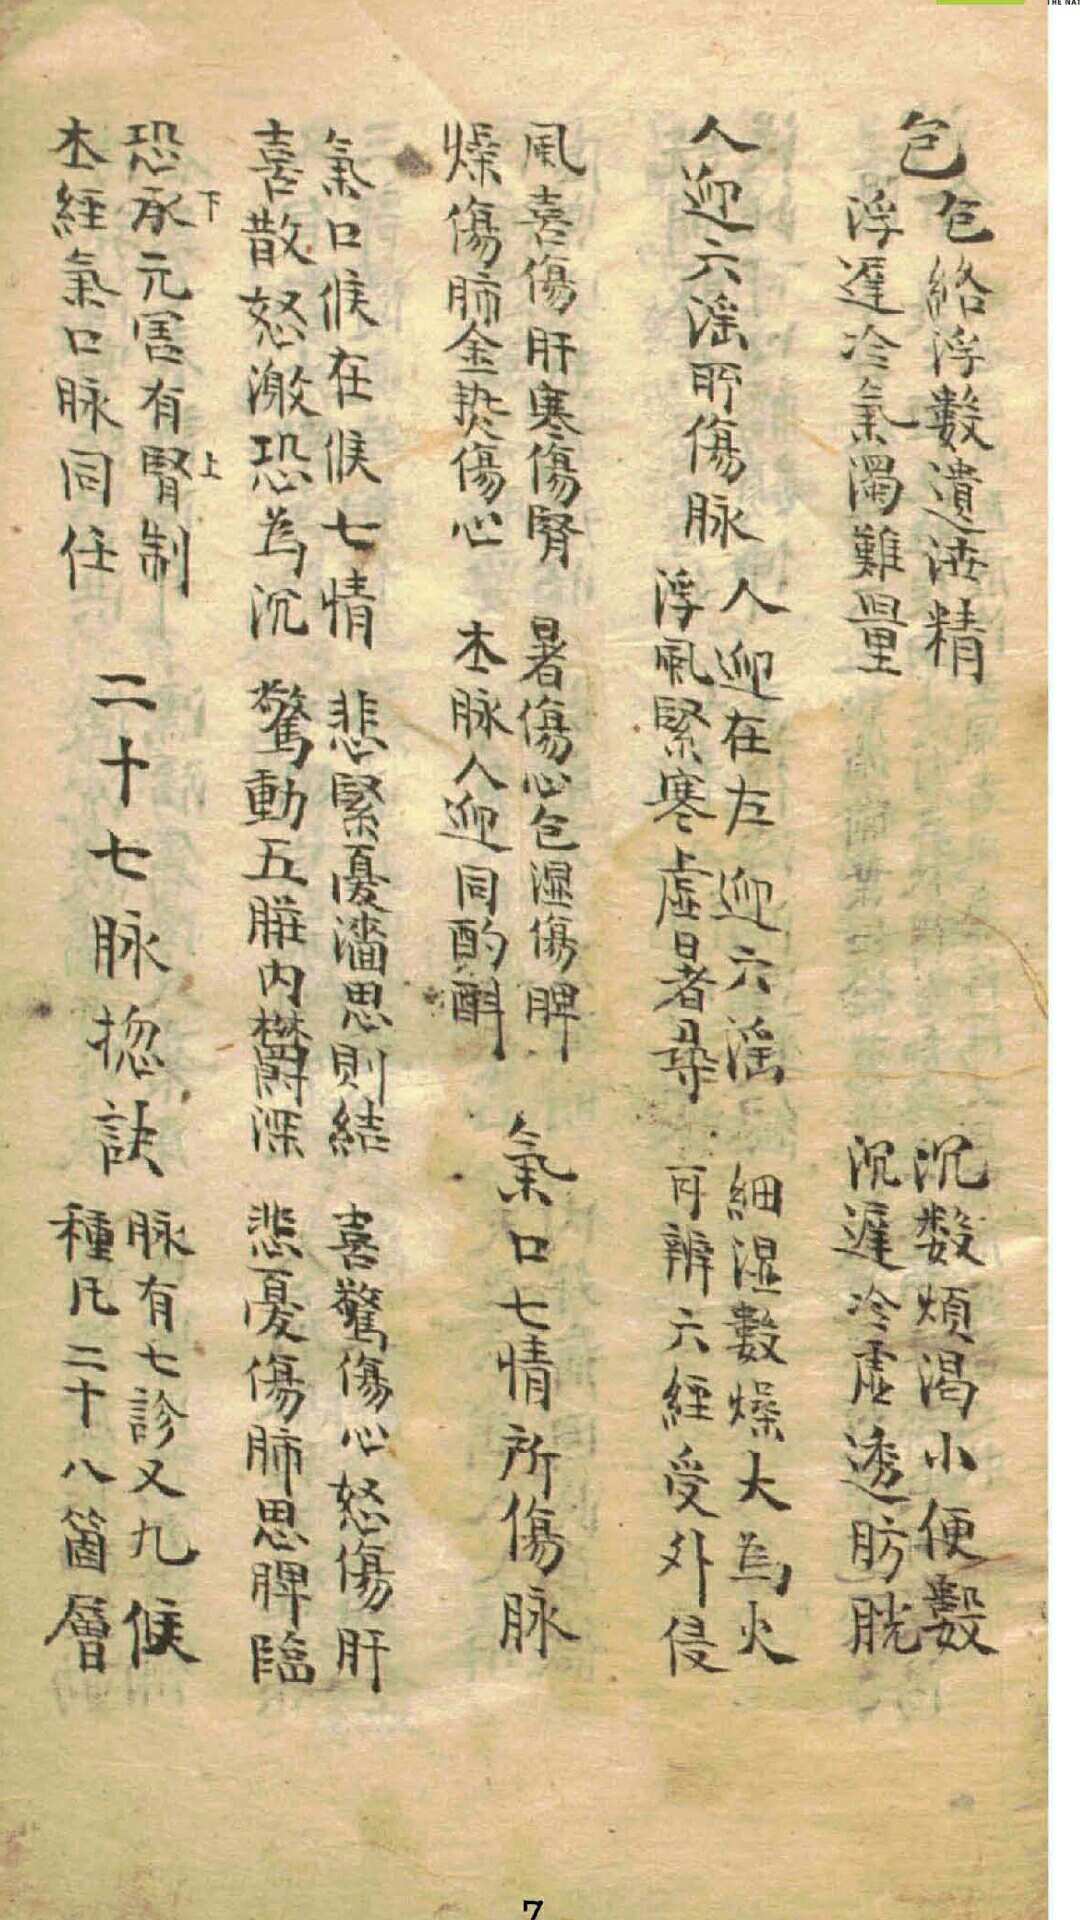 包
包絡浮數遺瀝精
浮遲冷氣濁難量
沉数煩渴小便數
沉遲冷虛透肪胱
人迎六淫所傷脉
人迎在左迎六淫
浮風緊寒虛暑尋
細湿數燥大為火
可辨六經受外侵
風喜傷肝寒傷腎
燥傷肺金热傷心
暑傷心包湿傷脾
本脉人迎同酌斟
氣口七情所傷脉
氣口候在候七情
喜散怒激恐為沉
悲緊憂濇思則結
驚動五臟内欝深
喜驚傷心怒傷肝
悲憂傷肺思脾臨
下
上
恐承元害有腎制
本經氣口脉同任
二十七脉捴訣
脉有七診又九候
種凡二十八箇層
THE NAT
7